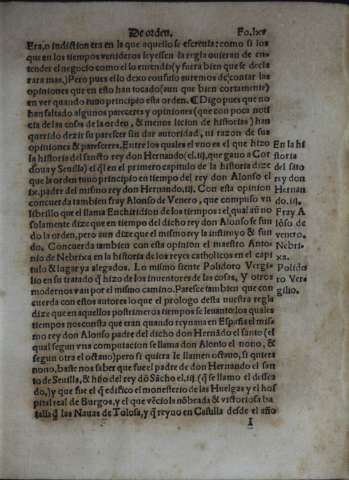 De orden. Fo. lxv
Era, o indiction era en la que aquello se escreuia: como si los
que en los tiempos venideros leyessen la regla ouieran de en-
tender el negocio como el lo entendia (y fuera bien que se decla
rara mas.) Pero pues el lo dexo confuso auremos de contar las
opiniones que en esto han tocado (aun que bien cortamente)
en ver quando tuuo principio esta orden. ¶ Digo pues que no
han faltado algunos paresceres y opiniones (que con poca noti
cia de las cosas de la orden, & menos licion de historias) han
querido dezir su parescer sin dar autoridad, ni razon de sus
opiniones & paresceres. Entre los quales el vno es el que hizo
la historia del sancto rey don Hernando (el .iij. que gano a Cor
doua y Seuilla) el ql en el primero capitulo de la historia dize
que la orden tuuo principio en tiempo del rey don Alonso el
ix. padre del mismo rey don Hernando .iij. Con esta opinion
concuerda tambien fray Alonso de Venero, que compuso vn
librillo que el llama Enchiridion de los tiempos: el qual aun no
solamente dize que en tiempo del dicho rey don Alonso se fun
do la orden, pero aun dize que el mismo rey la instituyo & fun
do. Concuerda tambien con esta opinion el maestro Anto-
nio de Nebrixa en la historia de los reyes catholicos en el capi
tulo & lugar ya alegados. Lo mismo siente Polidoro Vergi-
lio en su tratado q hizo de los inuentores de las cosas, Y otros
modernos van por el mismo camino. Paresce tambien que con
cuerda con estos autores lo que el prologo desta nuestra regla
dize que en aquellos postrimeros tiempos se leuanto: los quales
tiempos nos consta que eran quando reynaua en España el mis
mo rey don Alonso padre del dicho don Hernādo el santo (el
qual segun vna computacion se llama don Alonso el nono, &
segun otra el octauo) pero si quiera le llamen octauo, si quiera
nono, baste nos saber que fue el padre de don Hernando el san-
to de Seuilla, & hijo del rey dō Sācho el .iij. (q̄ se llamo el dessea
do,) y que fue el q̄ edifico el monesterio de las Huelgas y el hos
pital real de Burgos, y el que vēcio la nōbrada & victoriosa ba
talla q̄ las Nauas de Tolosa, y q̄ reyno en Castilla desde el año
En la hi
storia
del sāto
rey don
Hernan
do. iij.
Fray A
lōso de
venero.
Nebri-
xa.
Polido
ro Ver
gilio.
I